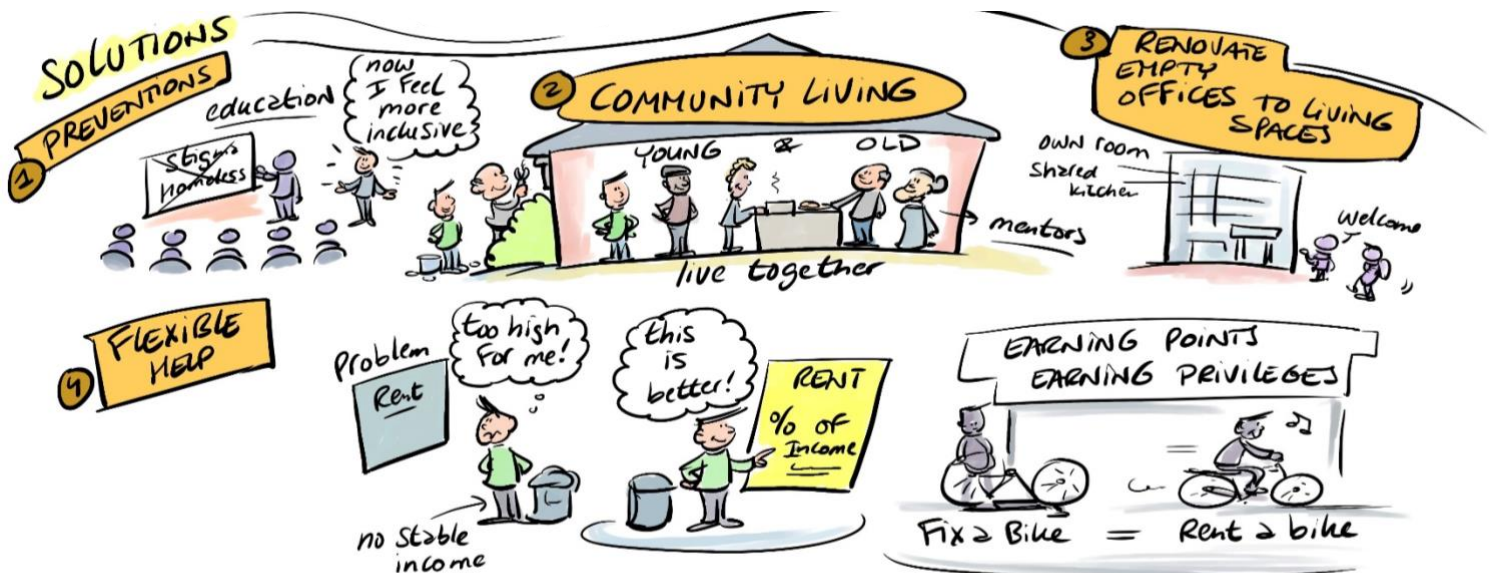 SOLUTIONS
1
PREVENTIONS
education
stigma
homeless
now
I feel
more
inclusive
2
COMMUNITY LIVING
YOUNG & OLD
mentors
live together
3
RENOVATE
EMPTY
OFFICES TO LIVING
SPACES
own room
Shared
kitchen
welcome
4
FLEXIBLE
HELP
Problem
Rent
too high
for me!
no stable
income
this
is
better!
RENT
% OF
Income
EARNING POINTS
EARNING PRIVILEGES
=
Fix a Bike = Rent a bike